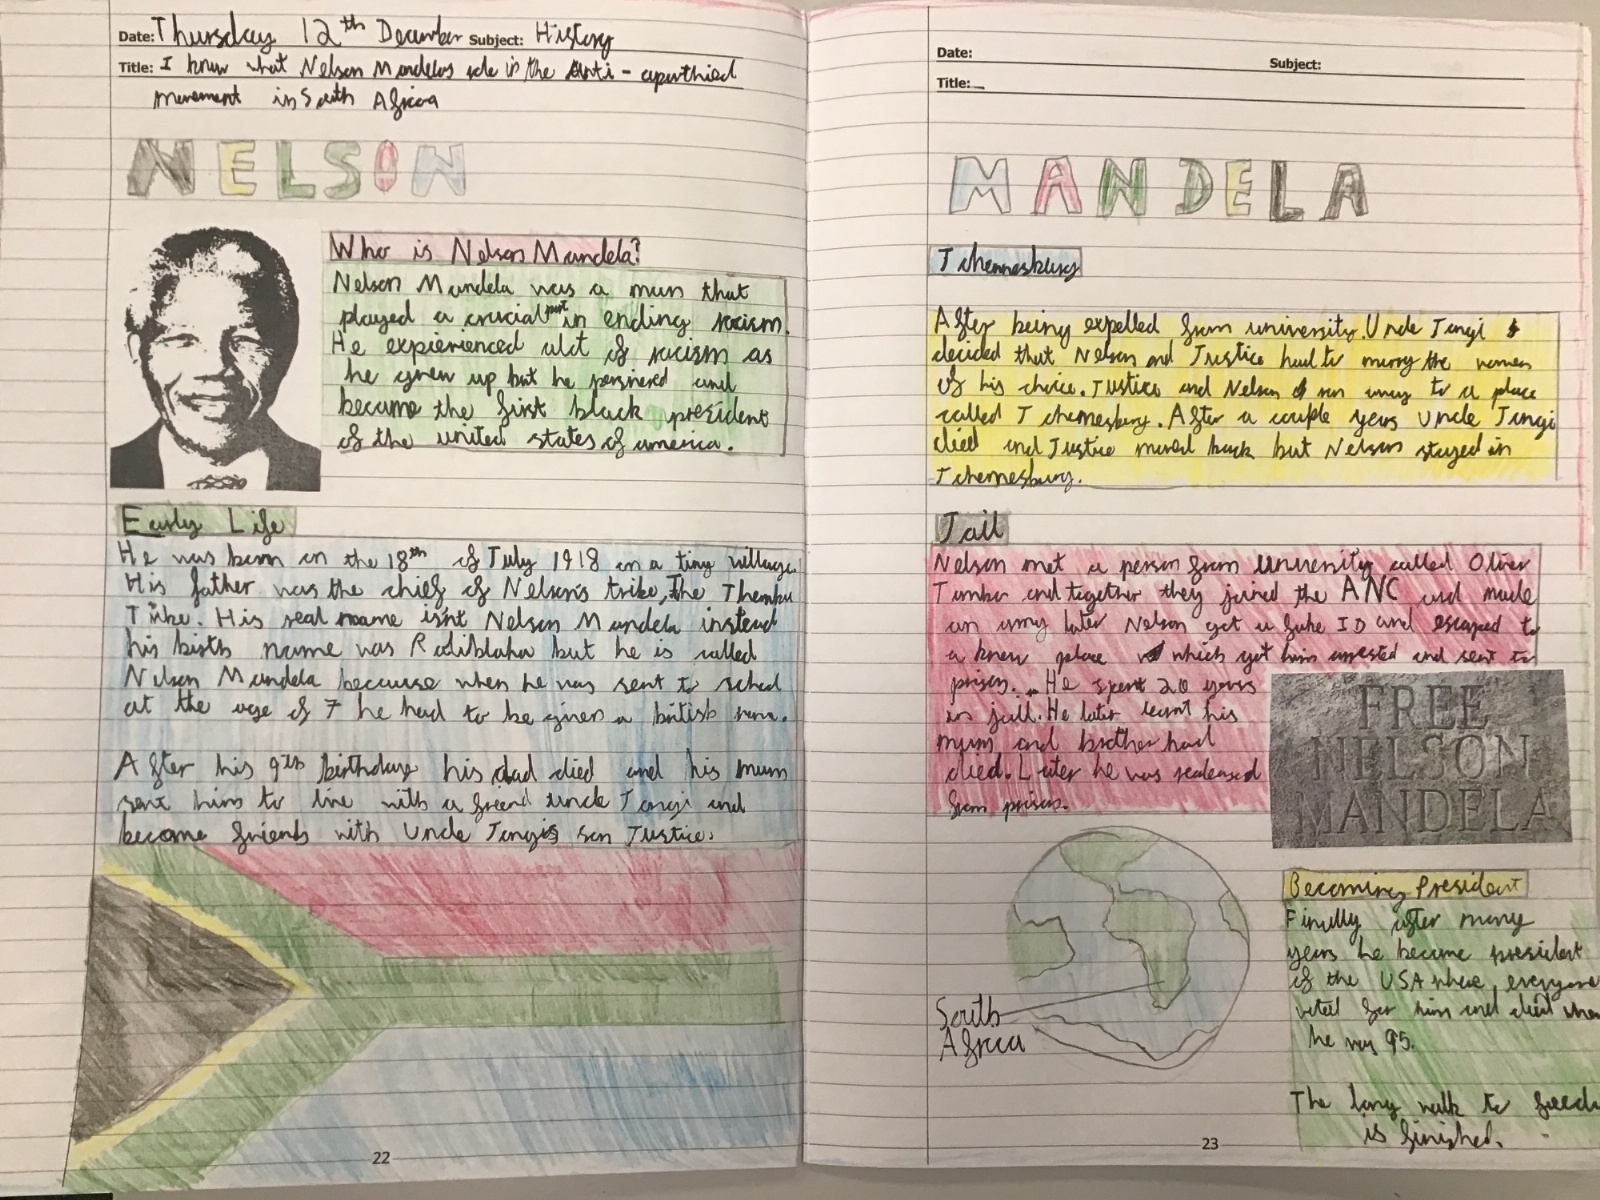 Date: Thursday 12th December Subject: History
Title: I know what Nelson Mandelas role in the Anti - aparthied
movement in South Africa
NELSON
Who is Nelson Mandela?
Nelson Mandela was a man that
played a crucial part in ending racism.
He expierienced alot of racism as
he grew up but he persivered and
became the first black president
of the united states of america.
Early Life
He was born on the 18th of July 1918 in a tiny village.
His father was the chief of Nelson's tribe, the Thembu
Tribe. His real name isn't Nelson Mandela instead
his birth name was Rodiblaha but he is called
Nelson Mandela because when he was sent to school
at the age of 7 he had to be given a british name.
After his 9th birthday his dad died and his mum
sent him to live with a friend uncle Jongi and
become friends with Uncle Jongis son Justice.
22
Date: Subject:
Title:
MANDELA
Johennesburg
After being expelled from university. Uncle Jongi
decided that Nelson and Justice had to marry the women
of his choice. Justice and Nelson ran away to a place
called Johennesburg. After a couple years Uncle Jongi
died and Justice moved back but Nelson stayed in
Johennesburg.
Jail
Nelson met a person from university called Oliver
Tambo and together they joined the ANC and made
an army later Nelson got a fake ID and escaped to
a knew place which got him arrested and sent to
prison. He spent 20 years
in jail. He later learnt his
mum and brother had
died. Later he was realeased
from prison.
FREE
NELSON
MANDELA
South
Africa
Becoming President
Finally after many
years he became president
of the USA where everyone
voted for him and died when
he was 95.
The long walk to
is finished.
23